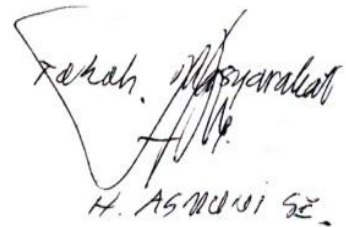 Tokoh. Masyarakat
H. ASMUNI SE.